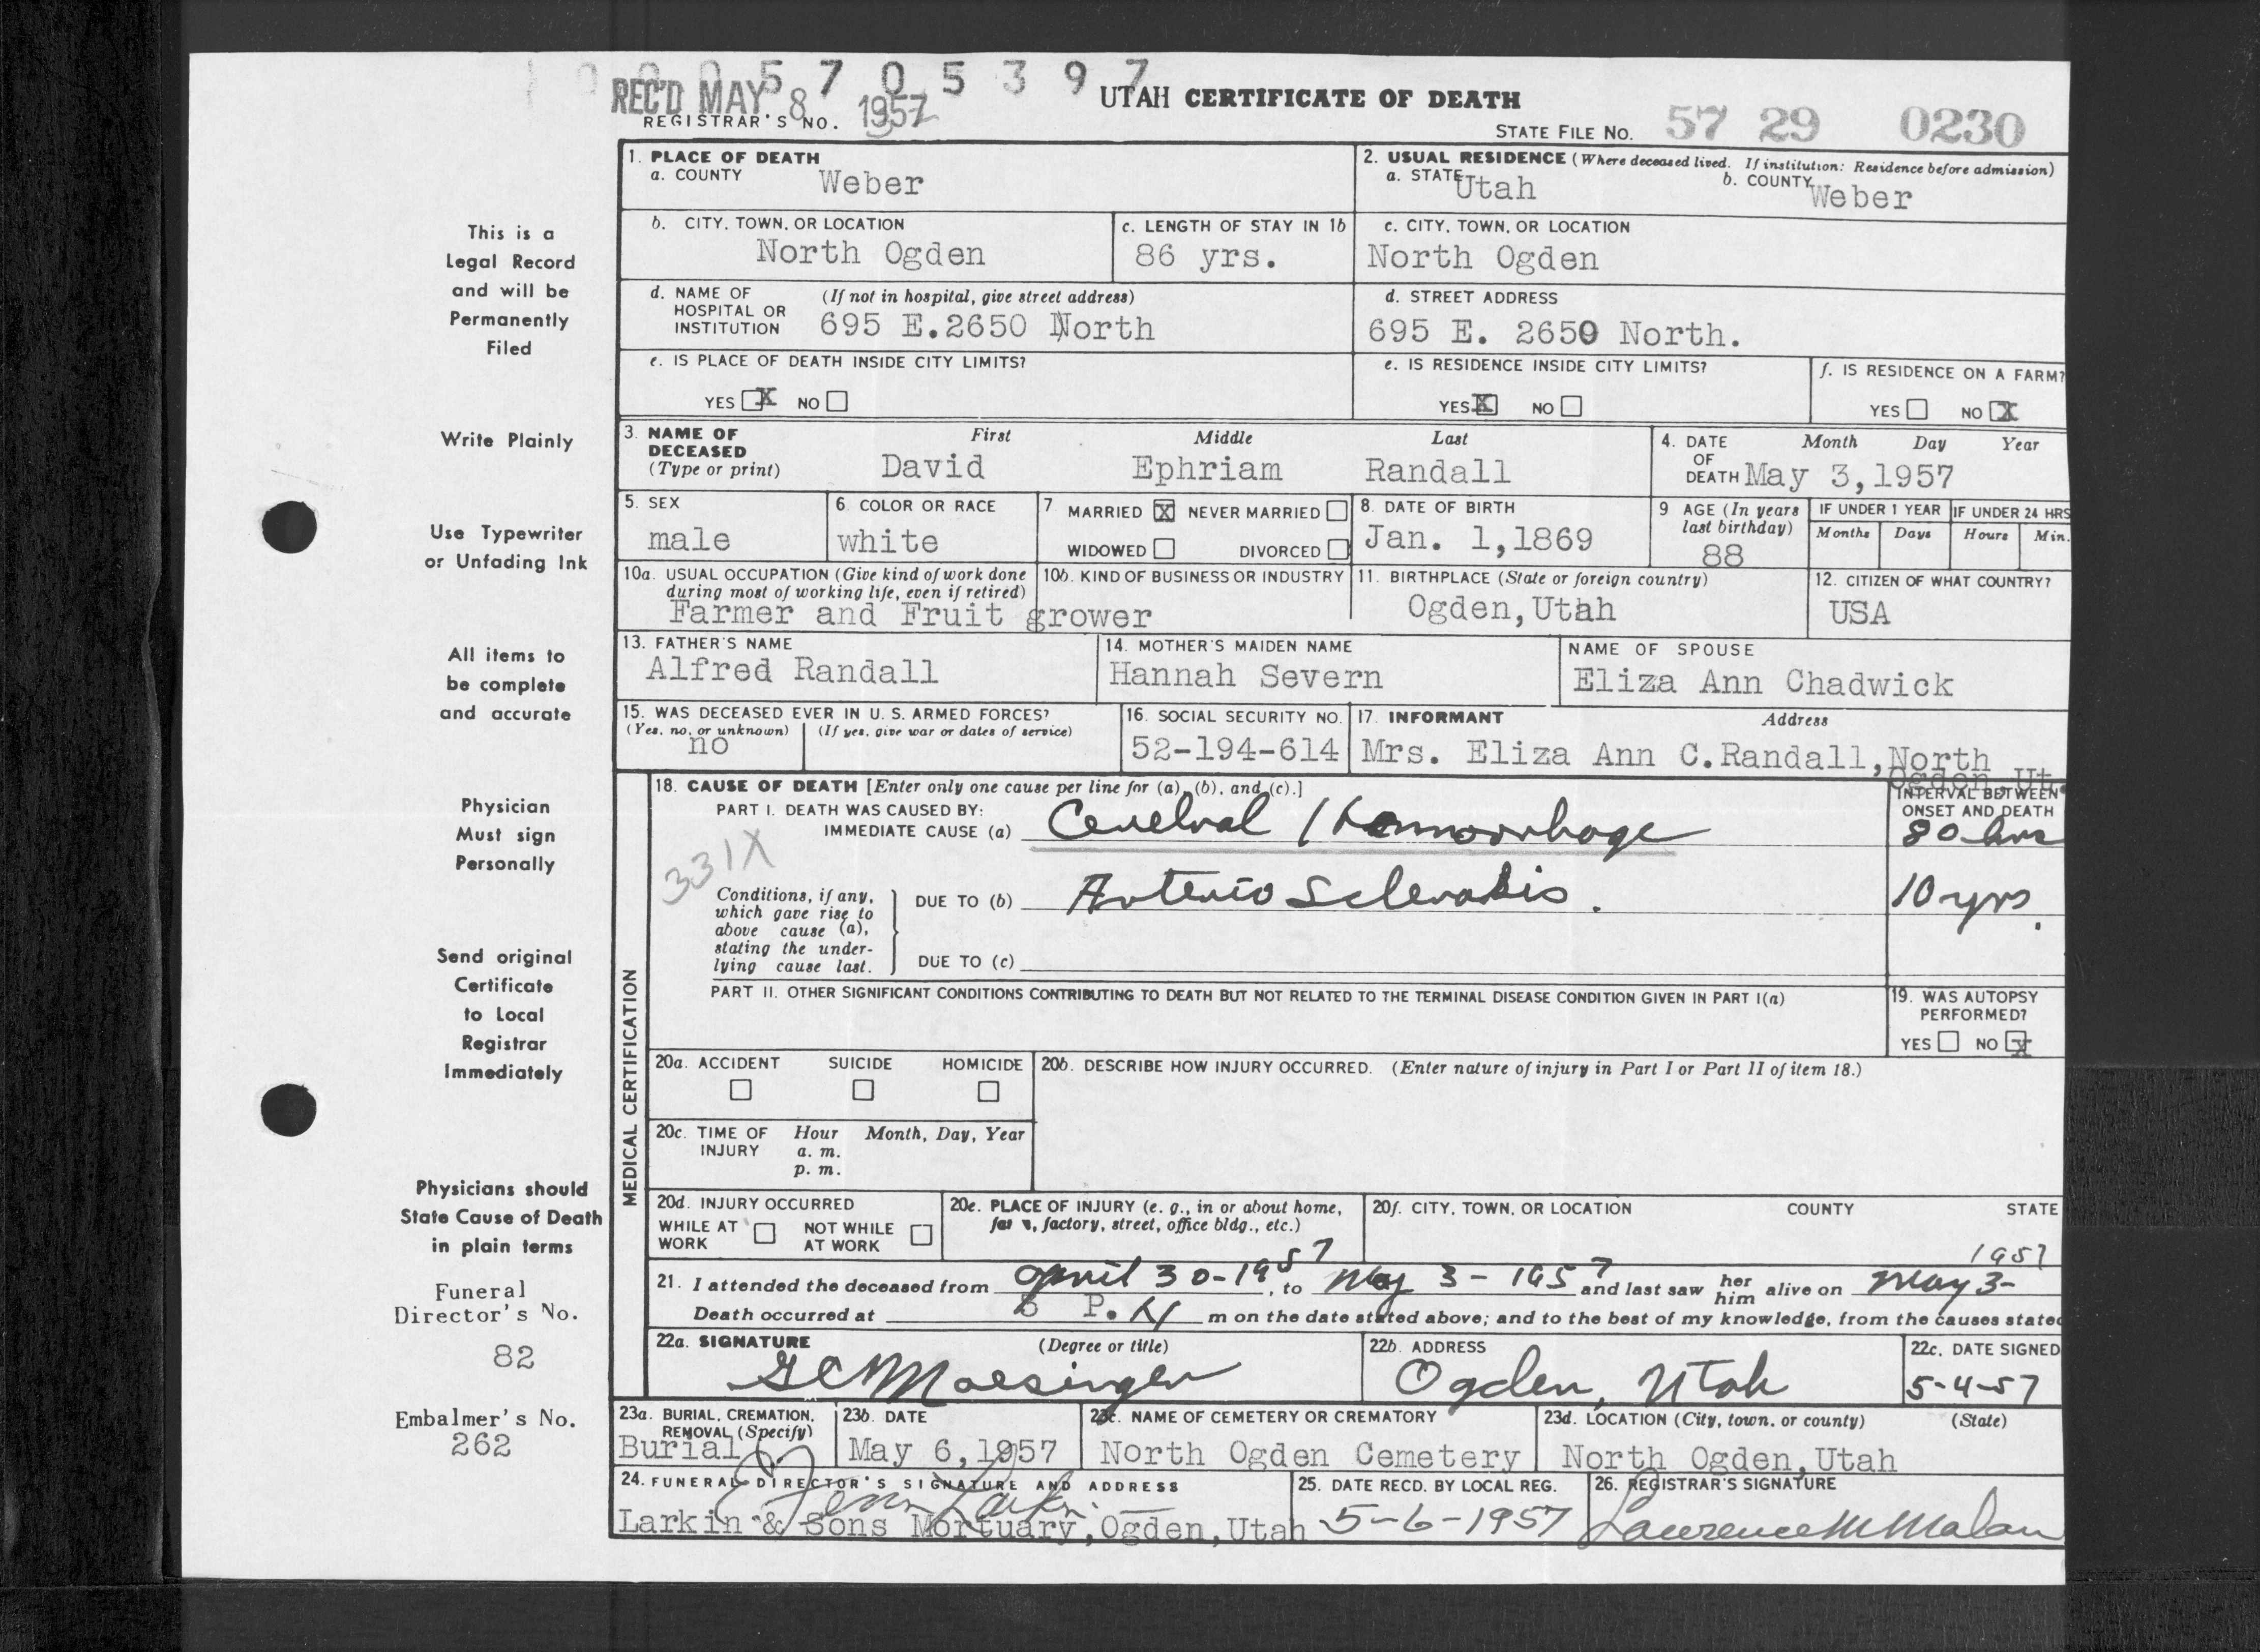 0 0 0 5 7 0 5 3 9 7
REC'D MAY 8 1957
UTAH CERTIFICATE OF DEATH
REGISTRAR'S NO.
STATE FILE NO. 57 29 0230
1. PLACE OF DEATH
a. COUNTY Weber
2. USUAL RESIDENCE (Where deceased lived. If institution: Residence before admission)
a. STATE Utah b. COUNTY Weber
b. CITY, TOWN, OR LOCATION
North Ogden
c. LENGTH OF STAY IN 1b
86 yrs.
c. CITY, TOWN, OR LOCATION
North Ogden
d. NAME OF HOSPITAL OR INSTITUTION (If not in hospital, give street address)
695 E.2650 North
d. STREET ADDRESS
695 E. 2650 North.
e. IS PLACE OF DEATH INSIDE CITY LIMITS?
YES X NO
e. IS RESIDENCE INSIDE CITY LIMITS?
YES X NO
f. IS RESIDENCE ON A FARM?
YES NO X
3. NAME OF DECEASED (Type or print)
First Middle Last
David Ephriam Randall
4. DATE OF DEATH Month Day Year
May 3,1957
5. SEX
male
6. COLOR OR RACE
white
7 MARRIED X NEVER MARRIED
WIDOWED DIVORCED
8. DATE OF BIRTH
Jan. 1,1869
9 AGE (In years last birthday)
88
IF UNDER 1 YEAR
Months Days
IF UNDER 24 HRS
Hours Min.
10a. USUAL OCCUPATION (Give kind of work done during most of working life, even if retired)
10b. KIND OF BUSINESS OR INDUSTRY
Farmer and Fruit grower
11. BIRTHPLACE (State or foreign country)
Ogden,Utah
12. CITIZEN OF WHAT COUNTRY?
USA
13. FATHER'S NAME
Alfred Randall
14. MOTHER'S MAIDEN NAME
Hannah Severn
NAME OF SPOUSE
Eliza Ann Chadwick
15. WAS DECEASED EVER IN U. S. ARMED FORCES?
(Yes, no, or unknown) (If yes, give war or dates of service)
no
16. SOCIAL SECURITY NO.
52-194-614
17. INFORMANT Address
Mrs. Eliza Ann C.Randall,North
Ogden,Ut.
MEDICAL CERTIFICATION
18. CAUSE OF DEATH [Enter only one cause per line for (a), (b), and (c).]
PART I. DEATH WAS CAUSED BY:
IMMEDIATE CAUSE (a) Cerebral Hemorrhage
331X
INTERVAL BETWEEN ONSET AND DEATH
80 hrs
Conditions, if any, which gave rise to above cause (a), stating the underlying cause last.
DUE TO (b) Arterio Sclerosis.
10 yrs.
DUE TO (c)
PART II. OTHER SIGNIFICANT CONDITIONS CONTRIBUTING TO DEATH BUT NOT RELATED TO THE TERMINAL DISEASE CONDITION GIVEN IN PART I(a)
19. WAS AUTOPSY PERFORMED?
YES NO X
20a. ACCIDENT SUICIDE HOMICIDE
20b. DESCRIBE HOW INJURY OCCURRED. (Enter nature of injury in Part I or Part II of item 18.)
20c. TIME OF INJURY Hour Month, Day, Year
a. m.
p. m.
20d. INJURY OCCURRED
WHILE AT WORK NOT WHILE AT WORK
20e. PLACE OF INJURY (e. g., in or about home, farm, factory, street, office bldg., etc.)
20f. CITY, TOWN, OR LOCATION COUNTY STATE
21. I attended the deceased from April 30-1957, to May 3-1957 and last saw her him alive on May 3- 1957
Death occurred at 5 P. M m on the date stated above; and to the best of my knowledge, from the causes stated
22a. SIGNATURE (Degree or title)
G C M Moesinger
22b. ADDRESS
Ogden, Utah
22c. DATE SIGNED
5-4-57
23a. BURIAL, CREMATION, REMOVAL (Specify)
Burial
23b. DATE
May 6,1957
23c. NAME OF CEMETERY OR CREMATORY
North Ogden Cemetery
23d. LOCATION (City, town, or county) (State)
North Ogden,Utah
24. FUNERAL DIRECTOR'S SIGNATURE AND ADDRESS
Larkin & Sons Mortuary,Ogden,Utah
25. DATE RECD. BY LOCAL REG.
5-6-1957
26. REGISTRAR'S SIGNATURE
Lawrence M Malan
This is a
Legal Record
and will be
Permanently
Filed
Write Plainly
Use Typewriter
or Unfading Ink
All items to
be complete
and accurate
Physician
Must sign
Personally
Send original
Certificate
to Local
Registrar
Immediately
Physicians should
State Cause of Death
in plain terms
Funeral
Director's No.
82
Embalmer's No.
262